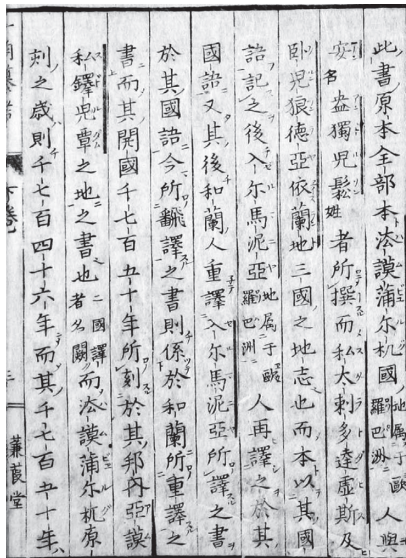 此書原本全部本泫謨蒲尓杌國地属于歐羅巴洲人與
安名盎獨児鬆姓者所撰而私太剌多達虚斯及
卧児狼德亞依蘭地三國之地志也而本以其國
語記之後入尓馬泥亞地属于歐羅巴洲人再譯之於其
國語又其後和蘭人重譯入尓馬泥亞所譯之書
於其國語今所飜譯之書則係於和蘭所重譯之
書而其開國千七百五十年所刻於其邦内亞謨
私鐸児覃之地之書也二國譯者名闕而泫謨蒲尓杌原
刻之歳則千七百四十六年而其千七百五十年
下卷
蒹葭堂